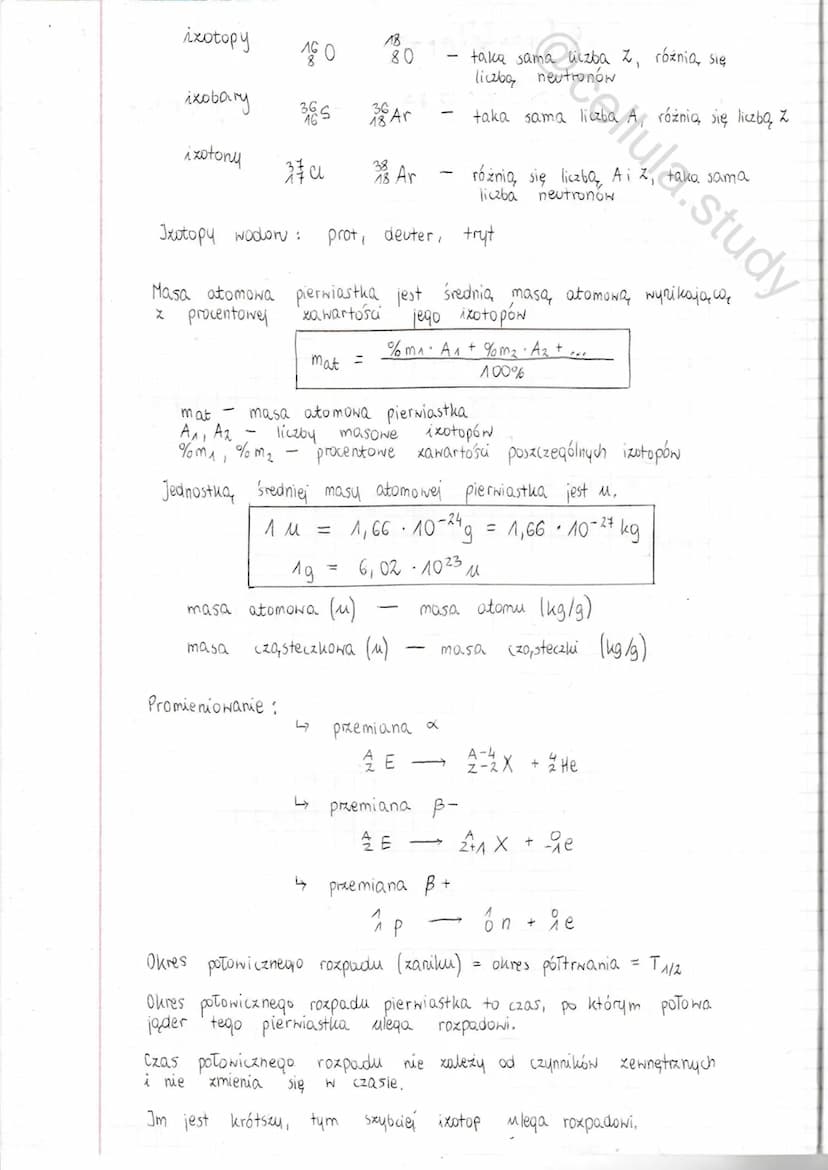 izotopy ¹⁶₈O ¹⁸₈O – taka sama liczba Z, różnią się
liczbą neutronów
izobary ³⁶₁₆S ³⁶₁₈Ar – taka sama liczba A, różnią się liczbą Z
izotony ³⁷₁₇Cl ³⁸₁₈Ar – różnią się liczbą A i Z, taka sama
liczba neutronów
Izotopy wodoru: prot, deuter, tryt
Masa atomowa pierwiastka jest średnią masą atomową wynikającą
z procentowej zawartości jego izotopów
m_at = (%m₁ · A₁ + %m₂ · A₂ + ...) / 100%
mat – masa atomowa pierwiastka
A₁, A₂ – liczby masowe izotopów
%m₁, %m₂ – procentowe zawartości poszczególnych izotopów
Jednostką średniej masy atomowej pierwiastka jest u.
1 u = 1,66 · 10⁻²⁴g = 1,66 · 10⁻²⁷ kg
1g = 6,02 · 10²³ u
masa atomowa (u) — masa atomu (kg/g)
masa cząsteczkowa (u) — masa cząsteczki (kg/g)
Promieniowanie:
↳ przemiana α
ᴬ_Z E ⟶ ᴬ⁻⁴_Z₋₂ X + ⁴₂He
↳ przemiana β-
ᴬ_Z E ⟶ ᴬ_Z₊₁ X + ⁰₋₁e
↳ przemiana β+
¹₁p ⟶ ¹₀n + ⁰₁e
Okres połowicznego rozpadu (zaniku) = okres półtrwania = T₁/₂
Okres połowicznego rozpadu pierwiastka to czas, po którym połowa
jąder tego pierwiastka ulega rozpadowi.
Czas połowicznego rozpadu nie zależy od czynników zewnętrznych
i nie zmienia się w czasie.
Im jest krótszy, tym szybciej izotop ulega rozpadowi.
@cellula.study